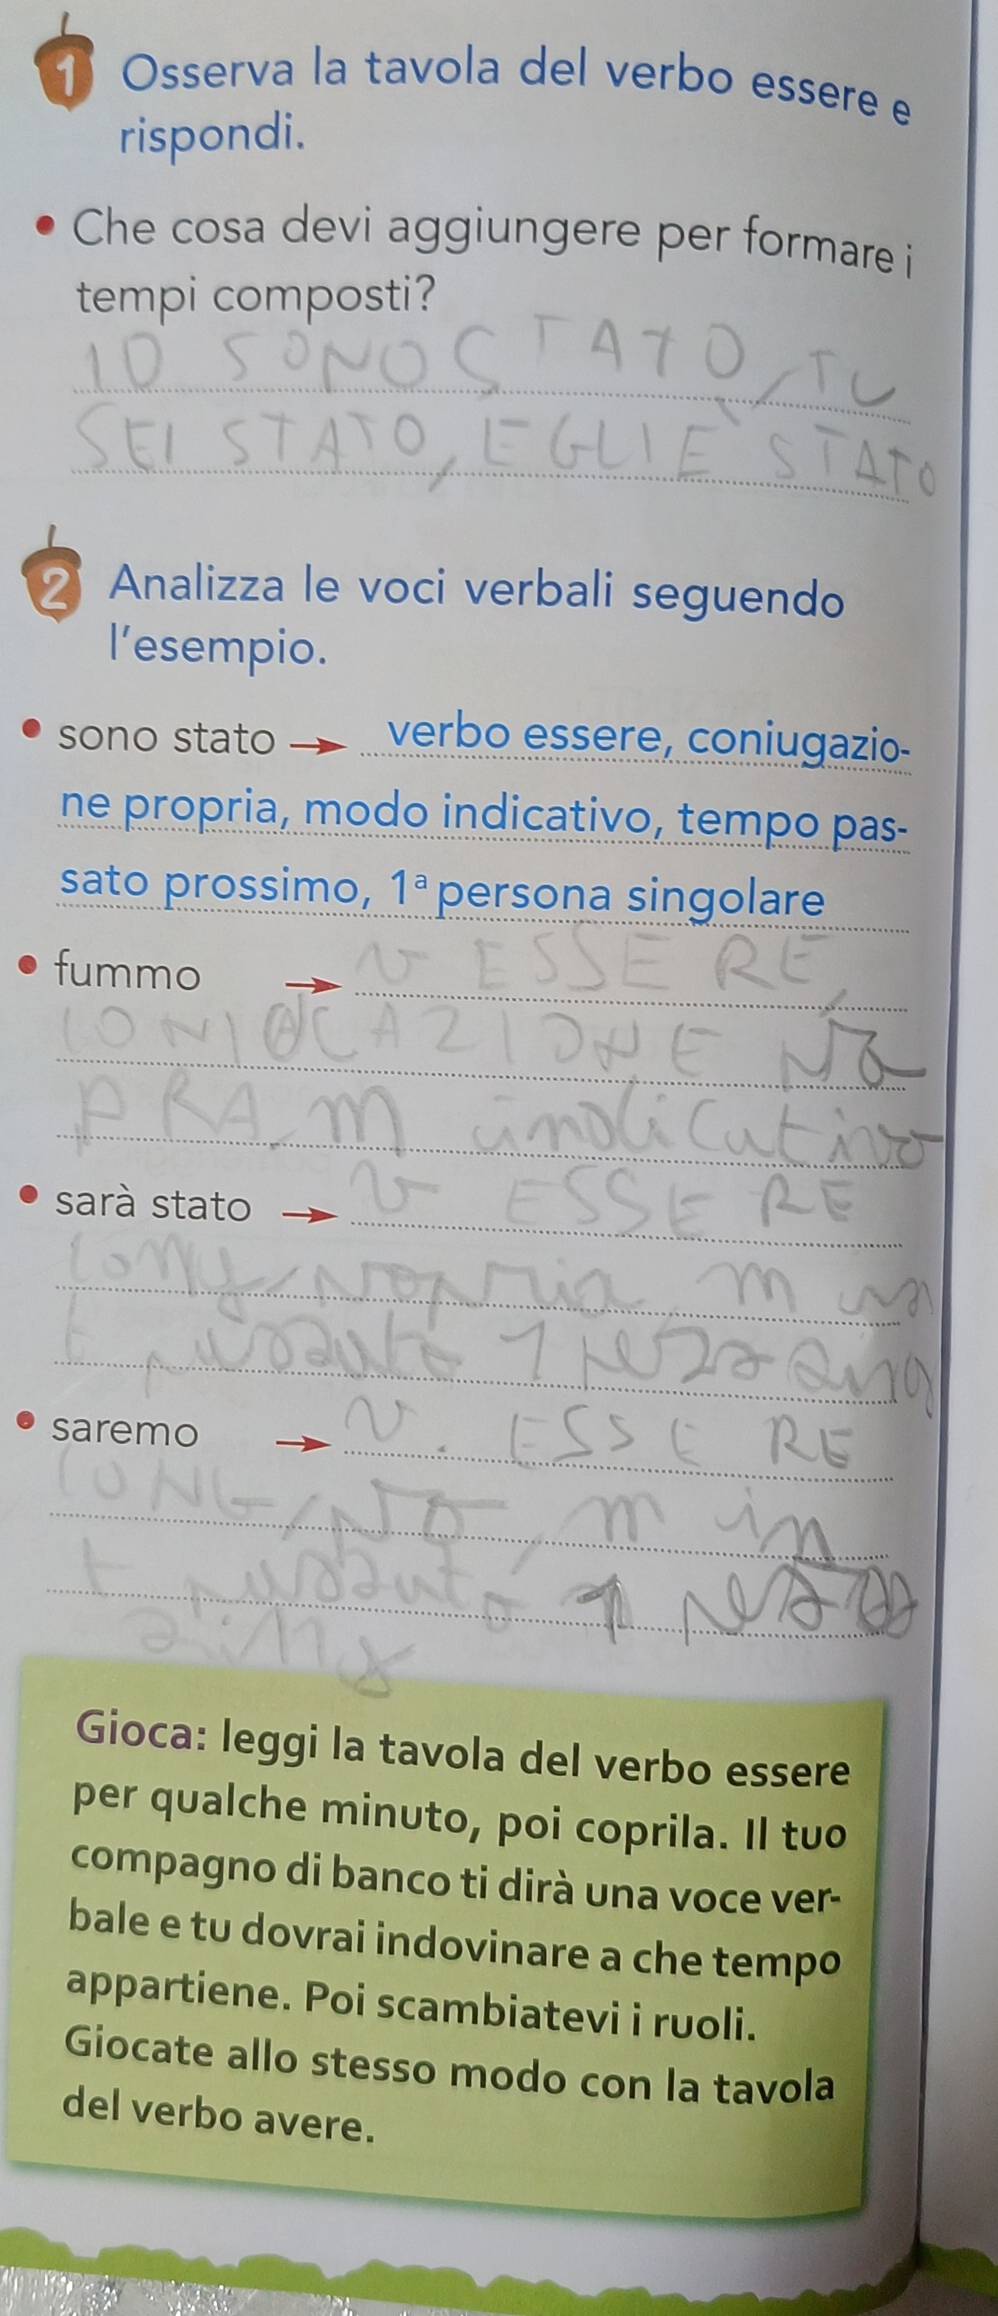 1 Osserva la tavola del verbo essere e
rispondi.
• Che cosa devi aggiungere per formare i
tempi composti?
IO SONO STATO, TU
SEI STATO, EGLI È STATO
2 Analizza le voci verbali seguendo
l'esempio.
• sono stato → verbo essere, coniugazio-
ne propria, modo indicativo, tempo pas-
sato prossimo, 1ª persona singolare
• fummo → v ESSERE,
m indicativo
• sarà stato → v ESSERE
m in
t
• saremo → v. ESSERE
m in
t
Gioca: leggi la tavola del verbo essere
per qualche minuto, poi coprila. Il tuo
compagno di banco ti dirà una voce ver-
bale e tu dovrai indovinare a che tempo
appartiene. Poi scambiatevi i ruoli.
Giocate allo stesso modo con la tavola
del verbo avere.